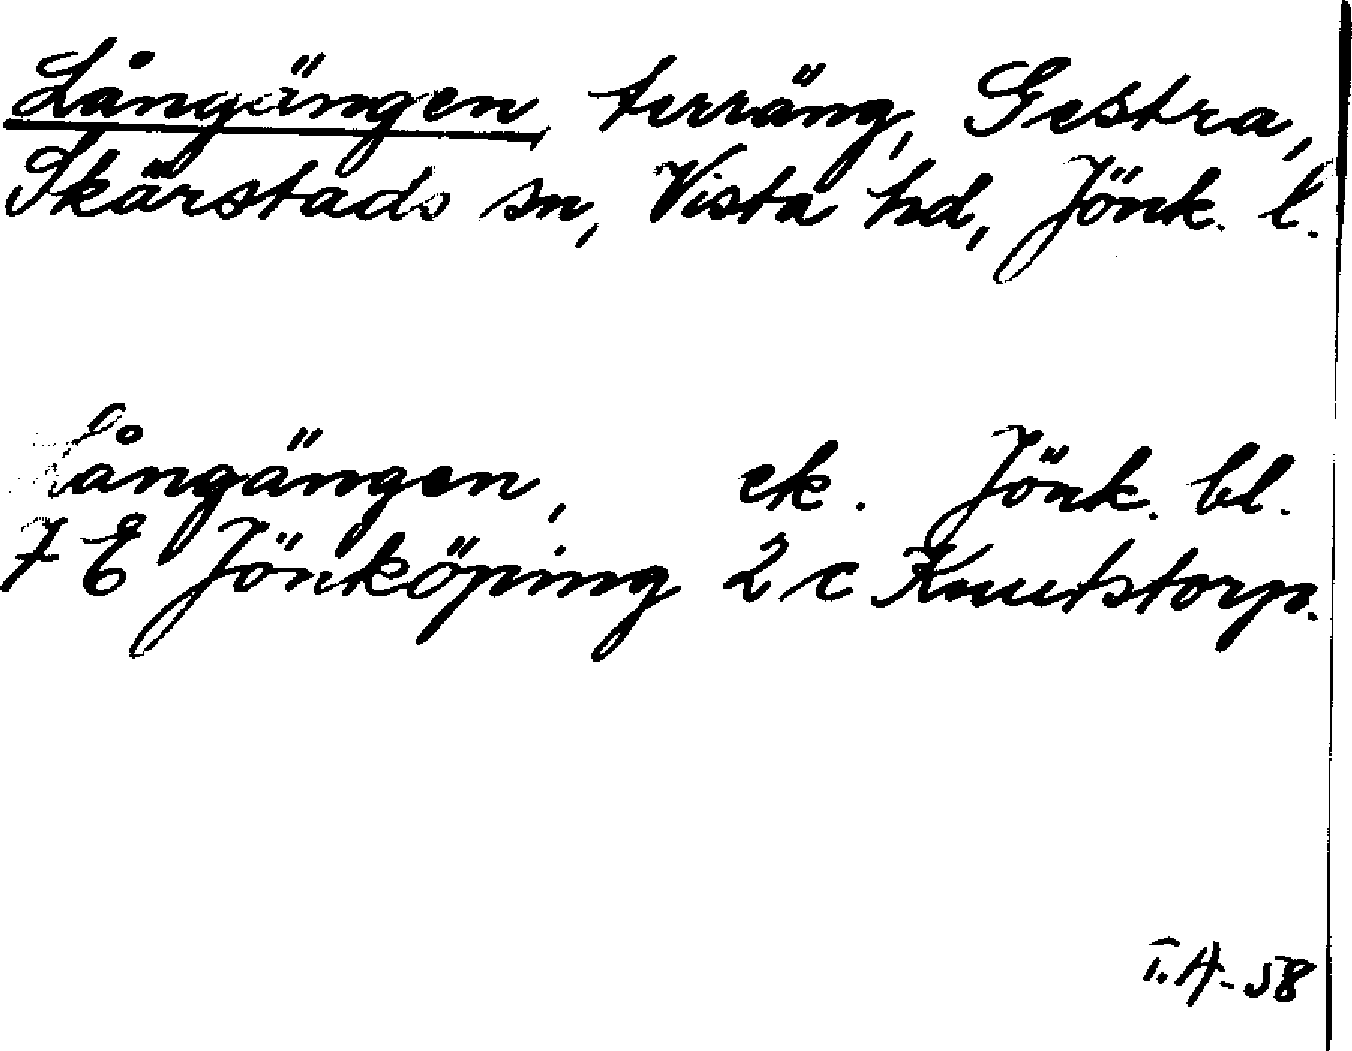 Långängen, terräng, Gestra,
Skärstads sn, Vista hd, Jönk. l.
Långängen, ek. Jönk. bl.
7 E Jönköping 2 c Knutstorp.
T.A-58